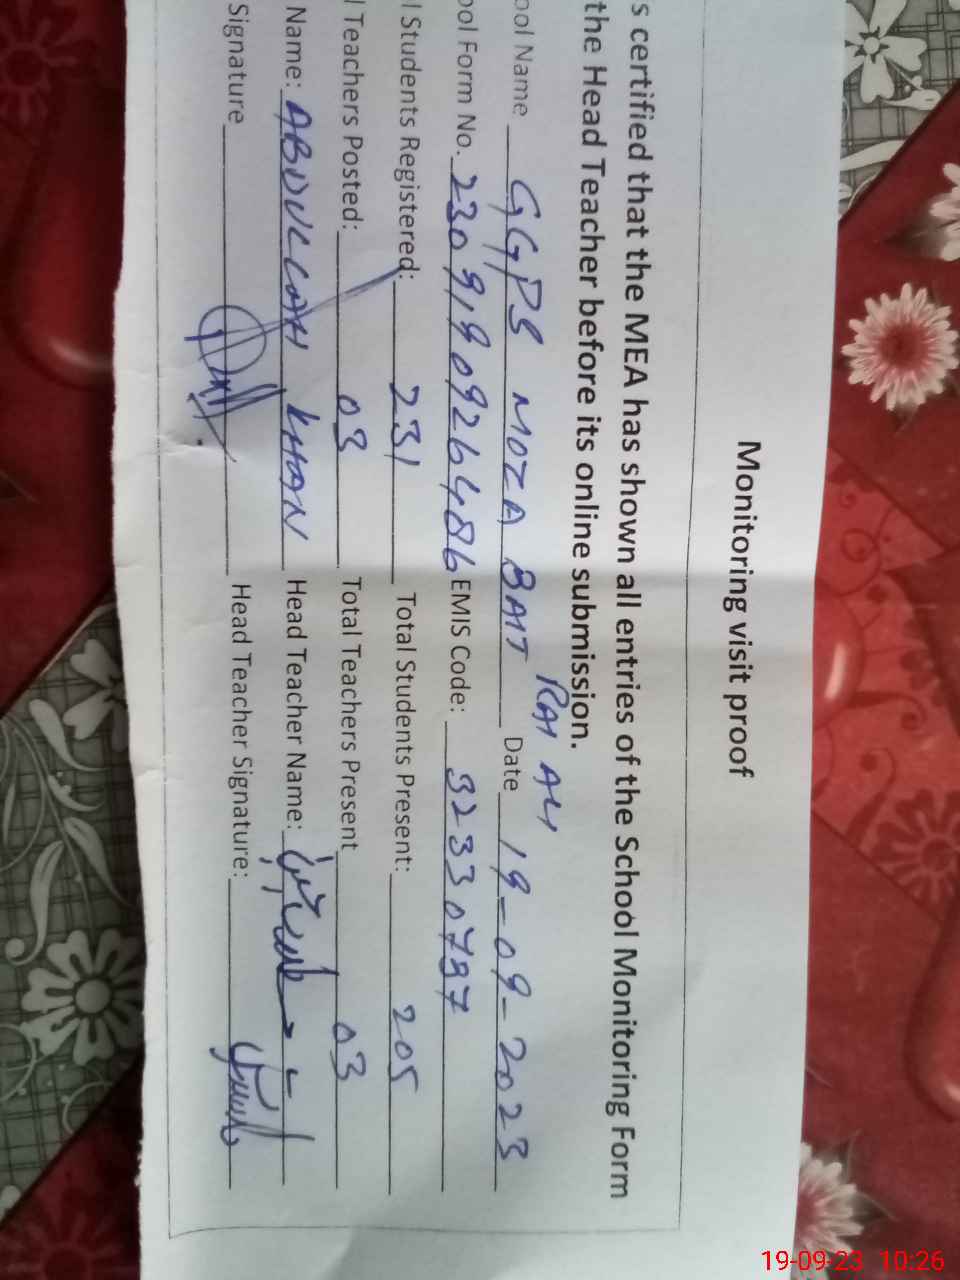 Monitoring visit proof
s certified that the MEA has shown all entries of the School Monitoring Form
the Head Teacher before its online submission.
ool Name GGPS MOZA BAIT RAI ALI Date 19-09-2023
ool Form No. 2309190926486 EMIS Code: 32330797
l Students Registered: 231 Total Students Present: 205
l Teachers Posted: 03 Total Teachers Present 03
Name: ABDULLAH KHAN Head Teacher Name:
Signature Head Teacher Signature:
19-09-23 10:26